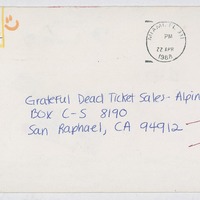 MIAMI, FL 331
PM
22 APR
1988
Grateful Dead Ticket Sales - Alpin
BOX C-S 8190
San Raphael, CA 94912